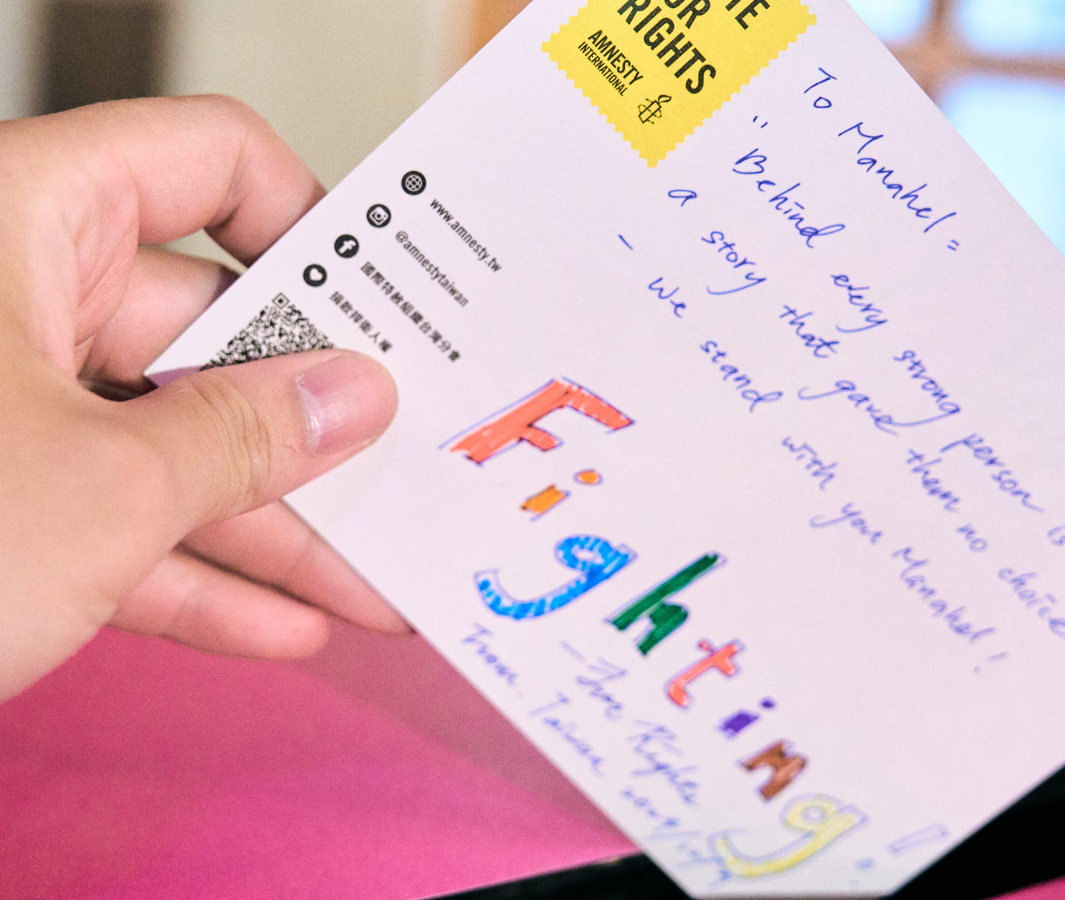 OR
RIGHTS
AMNESTY
INTERNATIONAL
www.amnesty.tw
@amnestytaiwan
國際特赦組織台灣分會
捐款捍衛人權
To Manahel =
"Behind every strong person is
a story that gave them no choice
- We stand with you Manahel!
Fighting!
- For Rights
From. Taiwan